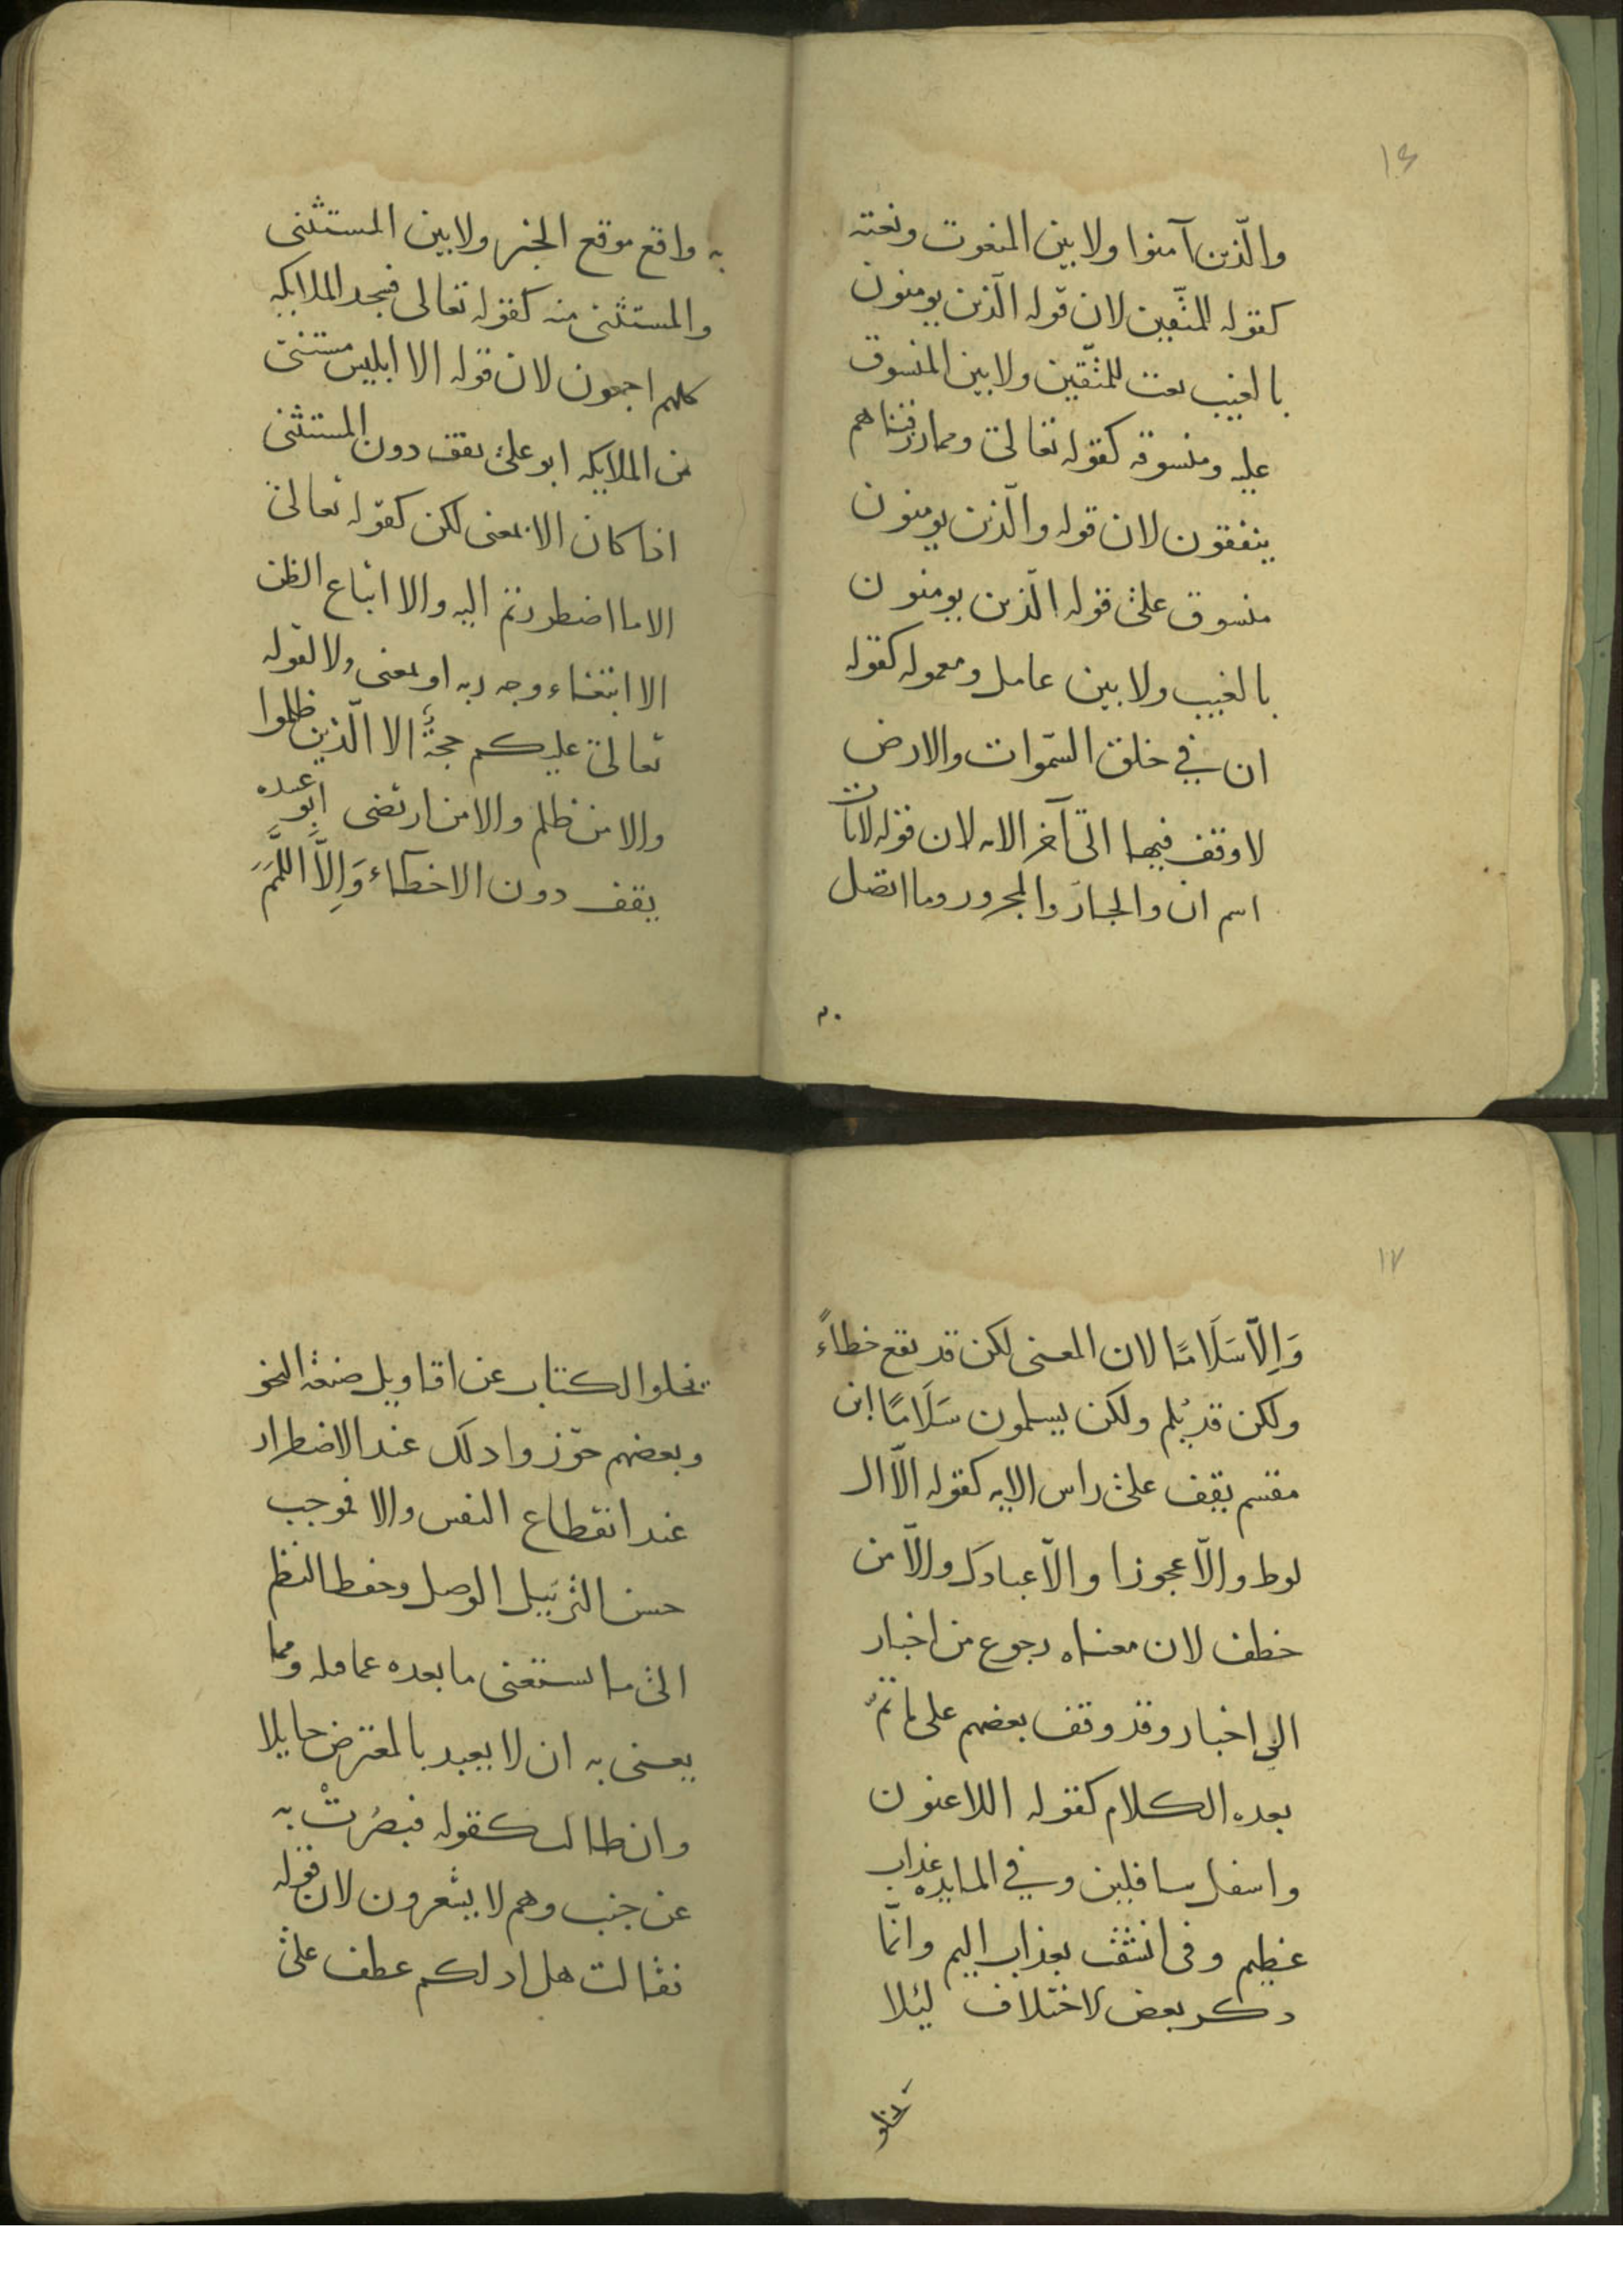 ١٦
والّذين آمنوا ولا بين المنعوت ونعته
كقوله للمتّقين لان قوله الّذين يومنون
بالغيب نعت للمتّقين ولا بين المنسوق
عليه ومنسوقه كقوله تعالى ومما رزقناهم
ينفقون لان قوله والّذين يومنون
منسوق على قوله الّذين يومنون
بالغيب ولا بين عامل ومعموله كقوله
ان في خلق السّموات والارض
لا وقف فيها الى آخر الايه لان قوله لآيات
اسم ان والجارّ والمجرور وما اتصل
به
به واقع موقع الخبر ولا بين المستثنى
والمستثنى منه كقوله تعالى فسجد الملايكه
كلهم اجمعون لان قوله الا ابليس مستثنى
من الملايكه ابو على يقف دون المستثنى
اذا كان الا بمعنى لكن كقوله تعالى
الا ما اضطررتم اليه والا اتباع الظن
الا ابتغاء وجه ربه او بمعنى ولا لقوله
تعالى عليكم حجةٌ الا الّذين ظلموا
والا من ظلم والا من ارتضى ابو عبده
يقف دون الا خطاء وَاِلاَّ اللَّمَمَ
١٧
وَاِلّا سَلَامًا لان المعنى لكن قد يقع خطاءً
ولكن قد يُلم ولكن يسلمون سَلَامًا ابن
مقسم يقف على راس الايه كقوله الّا ال
لوط والّا عجوزا والّا عبادك والّا من
خطف لان معناه رجوع من اخبار
الى اخبار وقد وقف بعضهم على ما تمّ
بعده الكلام كقوله اللاعنون
واسفل سافلين وفي المايده عذاب
عظيم وفى انشقت بعذاب اليم وانّما
ذكر بعض الاختلاف ليُلا
يخلو
يخلوا الكتاب عن اقاويل صنعة النحو
وبعضهم جوّزوا ذلك عند الاضطرار
عند انقطاع النفس والا فموجب
حسن الترتيل الوصل وحفظ النظم
الى ما يستغنى ما بعده عما قبله ومما
يعنى به ان لا يعبد بالمعترض حايلا
وان طال كقوله فبصُرتْ به
عن جنب وهم لا يشعرون لان قوله
فقالت هل ادلكم عطف على